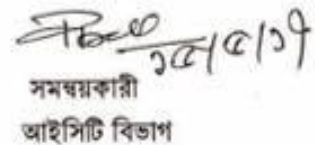 ১৫/৫/১৭
সমন্বয়কারী
আইসিটি বিভাগ